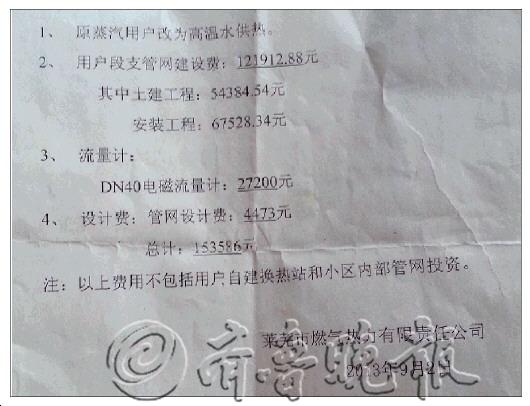 1、 原蒸汽用户改为高温水供热。
2、 用户段支管网建设费：121912.88元
其中土建工程：54384.54元
安装工程：67528.34元
3、 流量计：
DN40电磁流量计：27200元
4、 设计费：管网设计费：4473元
总计：153586元
注：以上费用不包括用户自建换热站和小区内部管网投资。
莱芜市燃气热力有限责任公司
2013年9月2日
齐鲁晚报